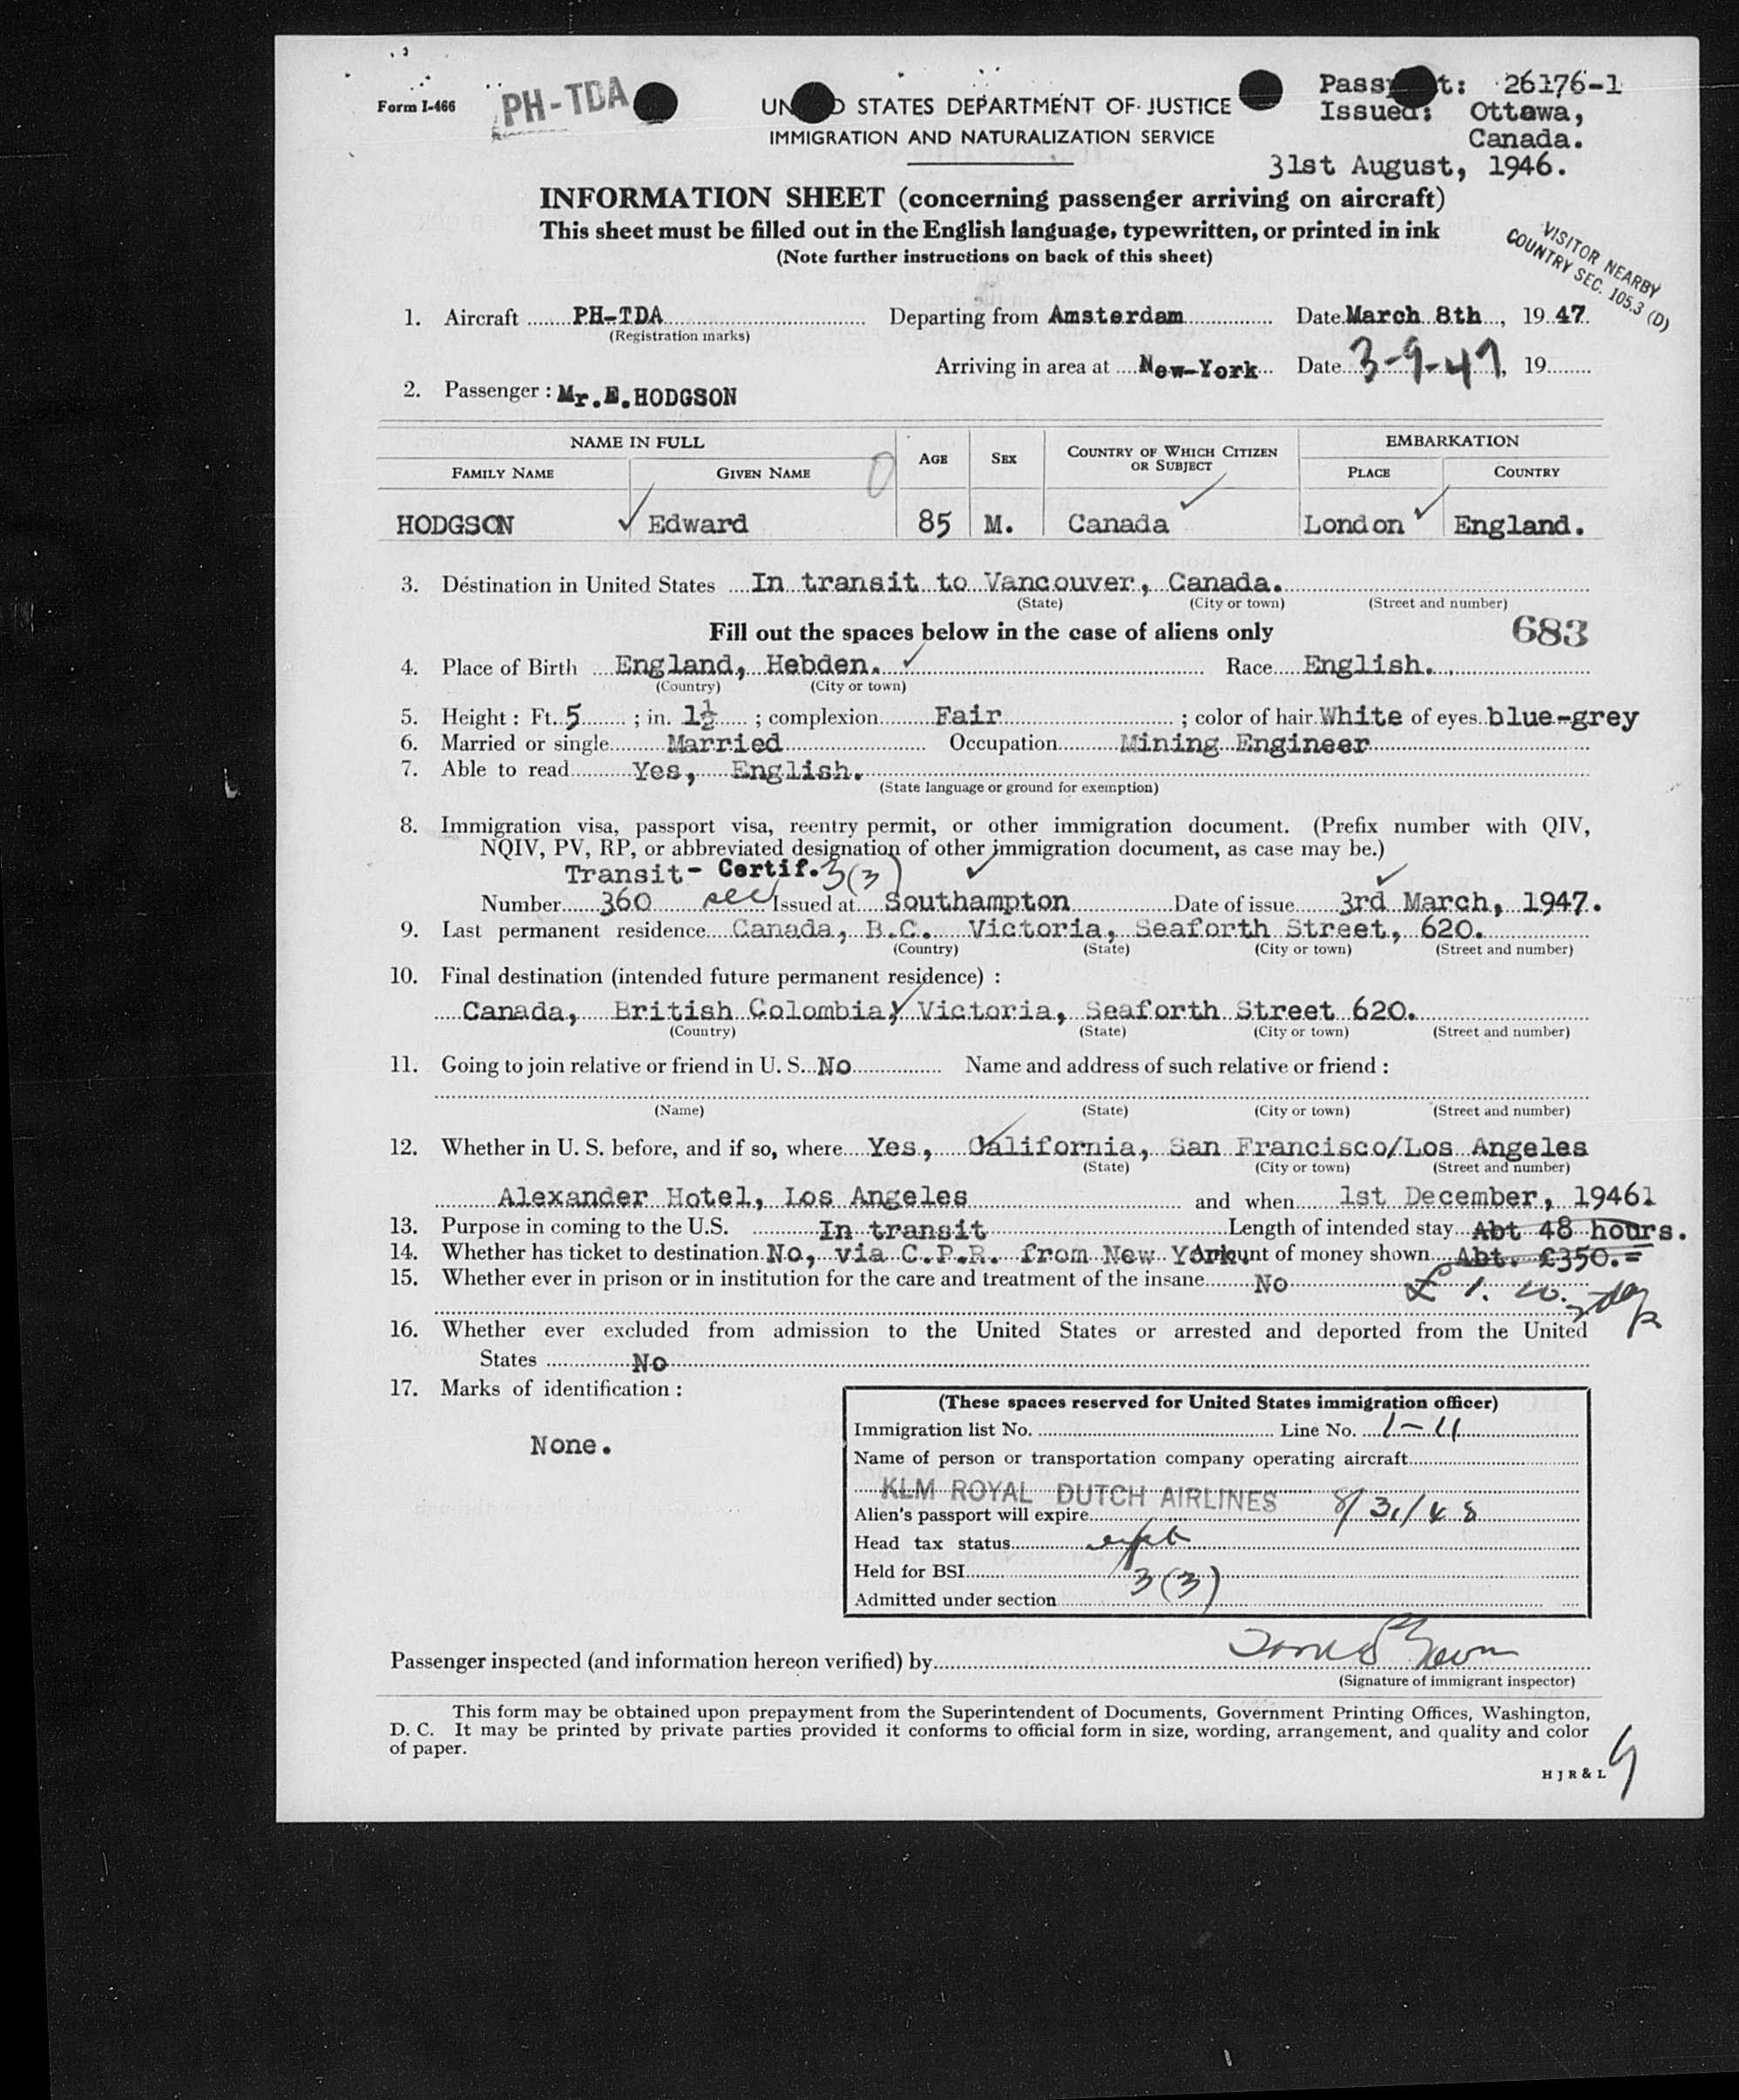 Form I-466
PH-TDA
UN D STATES DEPARTMENT OF JUSTICE
IMMIGRATION AND NATURALIZATION SERVICE
Pass t: 26176-1
Issued: Ottawa,
Canada.
31st August, 1946.
INFORMATION SHEET (concerning passenger arriving on aircraft)
This sheet must be filled out in the English language, typewritten, or printed in ink
(Note further instructions on back of this sheet)
VISITOR NEARBY
COUNTRY SEC. 105.3 (D)
1. Aircraft PH-TDA Departing from Amsterdam Date March 8th, 1947
(Registration marks)
Arriving in area at New-York Date 3-9-47, 19
2. Passenger: Mr.E.HODGSON
NAME IN FULL AGE SEX COUNTRY OF WHICH CITIZEN OR SUBJECT EMBARKATION
FAMILY NAME GIVEN NAME 0 PLACE COUNTRY
HODGSON Edward 85 M. Canada London England.
3. Destination in United States In transit to Vancouver, Canada.
(State) (City or town) (Street and number)
Fill out the spaces below in the case of aliens only 683
4. Place of Birth England, Hebden. Race English.
(Country) (City or town)
5. Height: Ft. 5 ; in. 1½ ; complexion Fair ; color of hair White of eyes blue-grey
6. Married or single Married Occupation Mining Engineer
7. Able to read Yes, English.
(State language or ground for exemption)
8. Immigration visa, passport visa, reentry permit, or other immigration document. (Prefix number with QIV,
NQIV, PV, RP, or abbreviated designation of other immigration document, as case may be.)
Transit- Certif. 3(3)
Number 360 sec Issued at Southampton Date of issue 3rd March, 1947.
9. Last permanent residence Canada, B.C. Victoria, Seaforth Street, 620.
(Country) (State) (City or town) (Street and number)
10. Final destination (intended future permanent residence) :
Canada, British Colombia, Victoria, Seaforth Street 620.
(Country) (State) (City or town) (Street and number)
11. Going to join relative or friend in U. S. No Name and address of such relative or friend :
(Name) (State) (City or town) (Street and number)
12. Whether in U. S. before, and if so, where Yes, California, San Francisco/Los Angeles
(State) (City or town) (Street and number)
Alexander Hotel, Los Angeles and when 1st December, 19461
13. Purpose in coming to the U.S. In transit Length of intended stay Abt 48 hours.
14. Whether has ticket to destination No, via C.P.R. from New York. Amount of money shown Abt. £350.=
15. Whether ever in prison or in institution for the care and treatment of the insane No
16. Whether ever excluded from admission to the United States or arrested and deported from the United
States No
17. Marks of identification :
None.
(These spaces reserved for United States immigration officer)
Immigration list No. Line No. 1-11
Name of person or transportation company operating aircraft
KLM ROYAL DUTCH AIRLINES
Alien's passport will expire 8/31/48
Head tax status
Held for BSI
Admitted under section 3(3)
Passenger inspected (and information hereon verified) by
(Signature of immigrant inspector)
This form may be obtained upon prepayment from the Superintendent of Documents, Government Printing Offices, Washington,
D. C. It may be printed by private parties provided it conforms to official form in size, wording, arrangement, and quality and color
of paper.
H J R & L 9